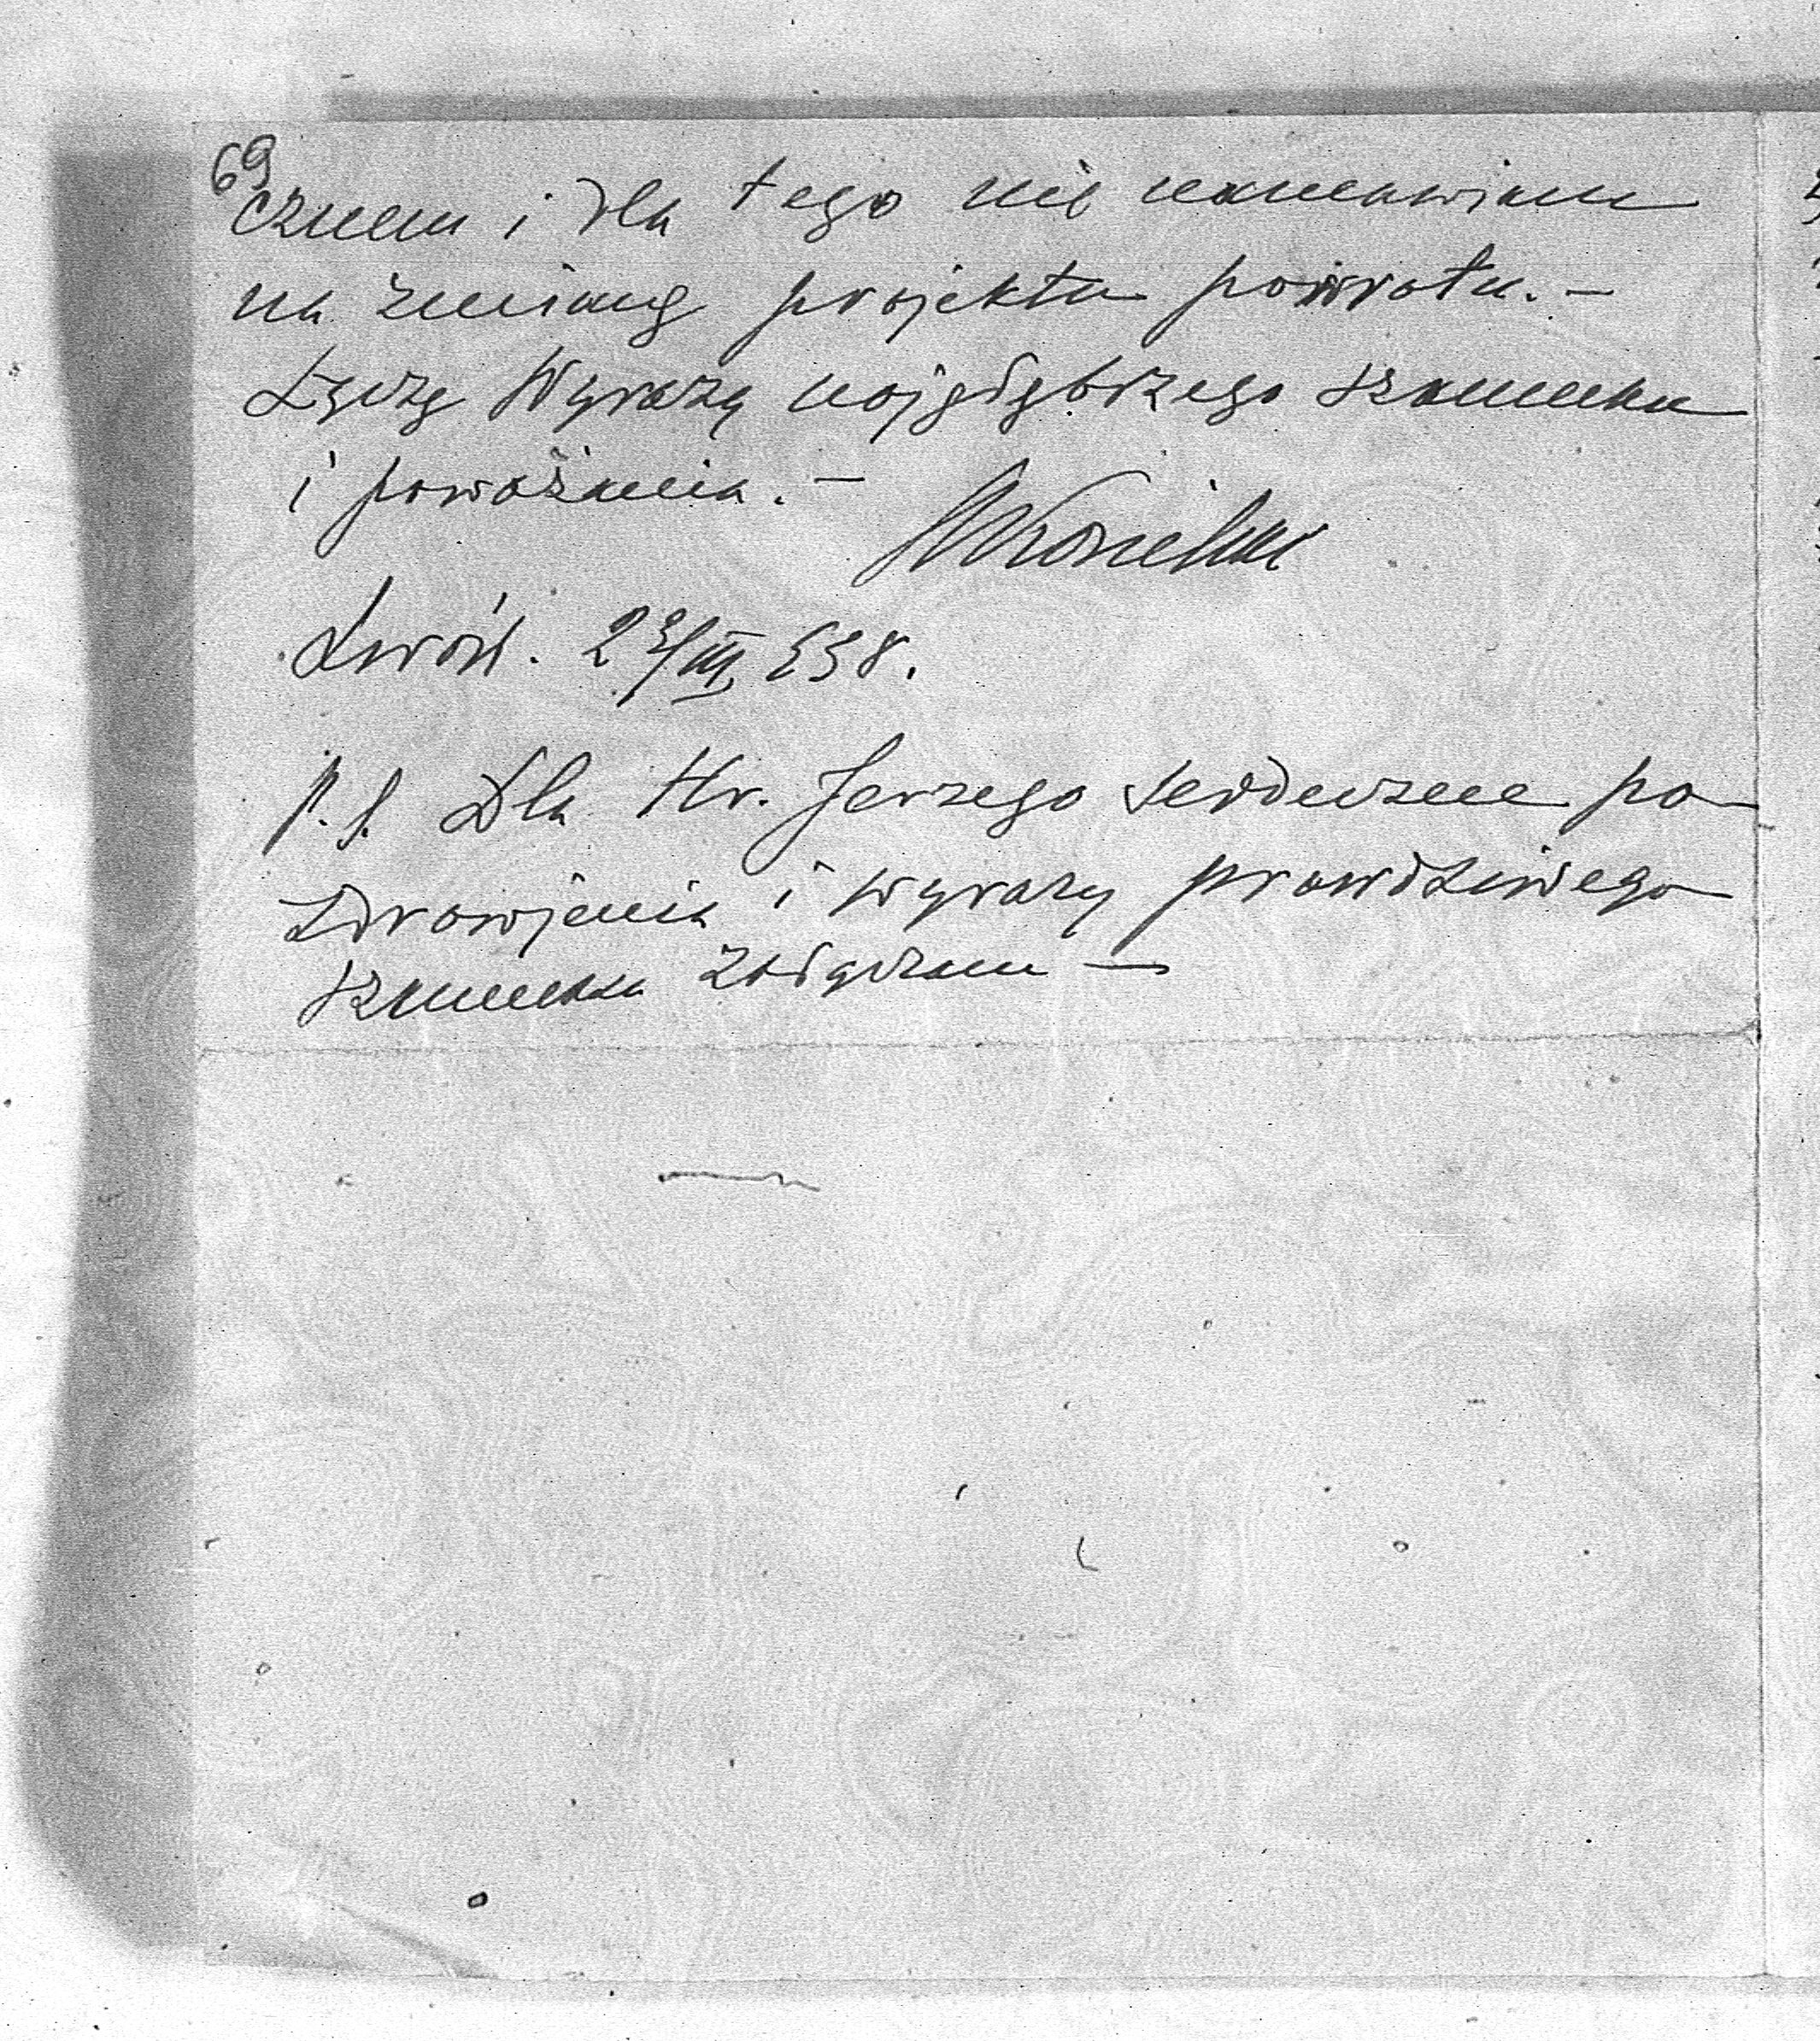 69
cznem i dla tego nie namawiam
na zmianę projektu powrotu. –
Łączę Wyrazy najgłębszego szacunku
i poważania. –
Lwów. 23/III 938.
P.S. Dla Hr. Jerzego serdeczne po-
zdrowienia i wyrazy prawdziwego
szacunku załączam –